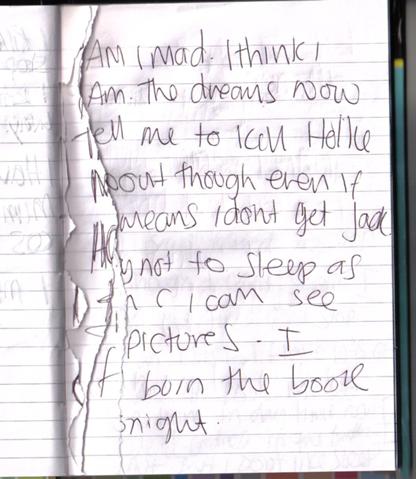 AM I Mad. I think I
AM. The dreams now
tell me to kill
though even if
means I dont get Jack
not to sleep as
I can see
pictures. I
burn the book
night.